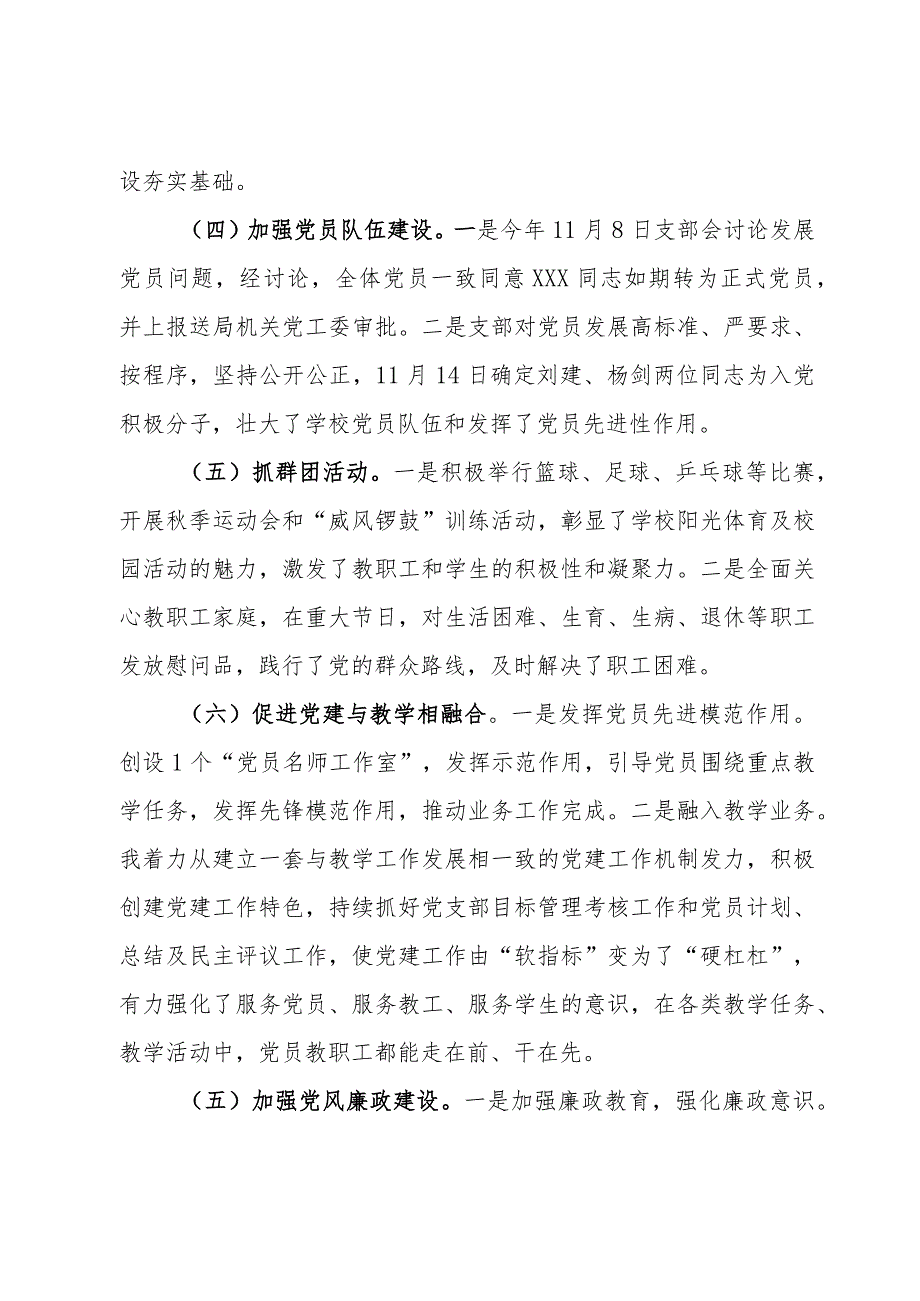 设夯实基础。
（四）加强党员队伍建设。一是今年 11 月 8 日支部会讨论发展
党员问题，经讨论，全体党员一致同意 XXX 同志如期转为正式党员，
并上报送局机关党工委审批。二是支部对党员发展高标准、严要求、
按程序，坚持公开公正，11 月 14 日确定刘建、杨剑两位同志为入党
积极分子，壮大了学校党员队伍和发挥了党员先进性作用。
（五）抓群团活动。一是积极举行篮球、足球、乒乓球等比赛，
开展秋季运动会和“威风锣鼓”训练活动，彰显了学校阳光体育及校
园活动的魅力，激发了教职工和学生的积极性和凝聚力。二是全面关
心教职工家庭，在重大节日，对生活困难、生育、生病、退休等职工
发放慰问品，践行了党的群众路线，及时解决了职工困难。
（六）促进党建与教学相融合。一是发挥党员先进模范作用。
创设 1 个“党员名师工作室”，发挥示范作用，引导党员围绕重点教
学任务，发挥先锋模范作用，推动业务工作完成。二是融入教学业务。
我着力从建立一套与教学工作发展相一致的党建工作机制发力，积极
创建党建工作特色，持续抓好党支部目标管理考核工作和党员计划、
总结及民主评议工作，使党建工作由“软指标”变为了“硬杠杠”，
有力强化了服务党员、服务教工、服务学生的意识，在各类教学任务、
教学活动中，党员教职工都能走在前、干在先。
（五）加强党风廉政建设。一是加强廉政教育，强化廉政意识。